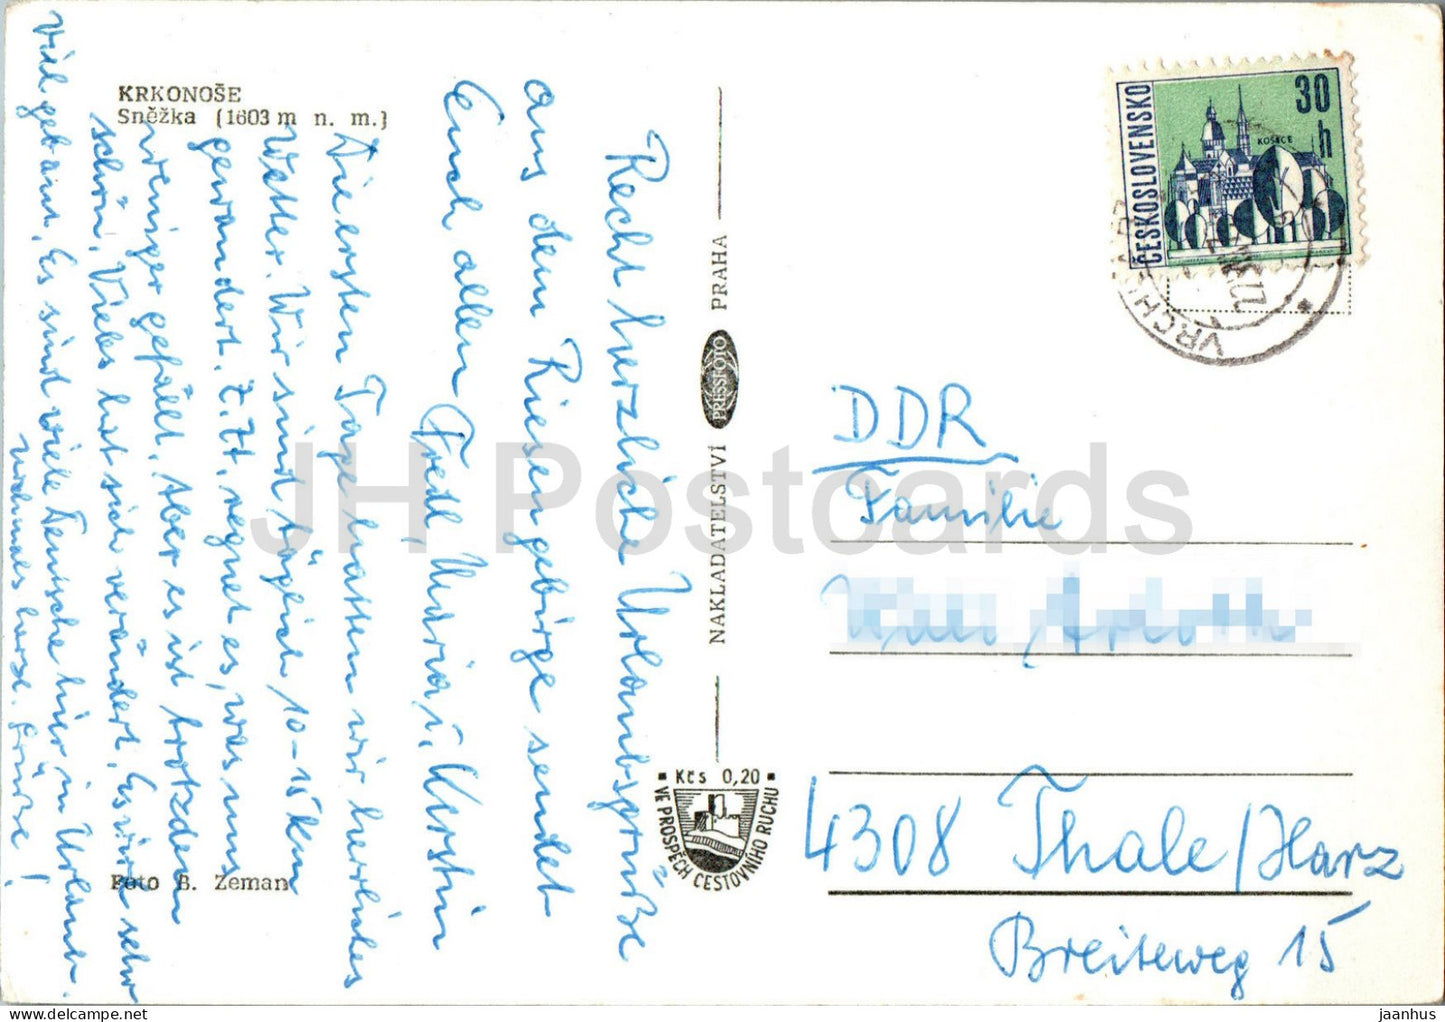 KRKONOŠE
Sněžka (1603 m n. m.)
Recht herzliche Urlaubsgrüße
aus dem Riesengebirge sendet
Euch allen Fredl, Maria u. Kerstin
Die ersten Tage hatten wir herrliches
Wetter. Wir sind täglich 10-15 km
gewandert. Z.Zt. regnet es, was uns
weniger gefällt. Aber es ist trotzdem
schön. Vieles hat sich verändert. Es wird sehr
viel gebaut. Es sind viele Deutsche hier in Urlaub.
Nochmals herzl. Grüße!
Foto B. Zeman
NAKLADATELSTVÍ PRESSFOTO PRAHA
Kčs 0,20
VE PROSPĚCH CESTOVNÍHO RUCHU
ČESKOSLOVENSKO
30 h
KOŠICE
VRCHLABÍ
DDR
Familie
4308 Thale/Harz
Breiteweg 15
JH Postcards
jaanhus